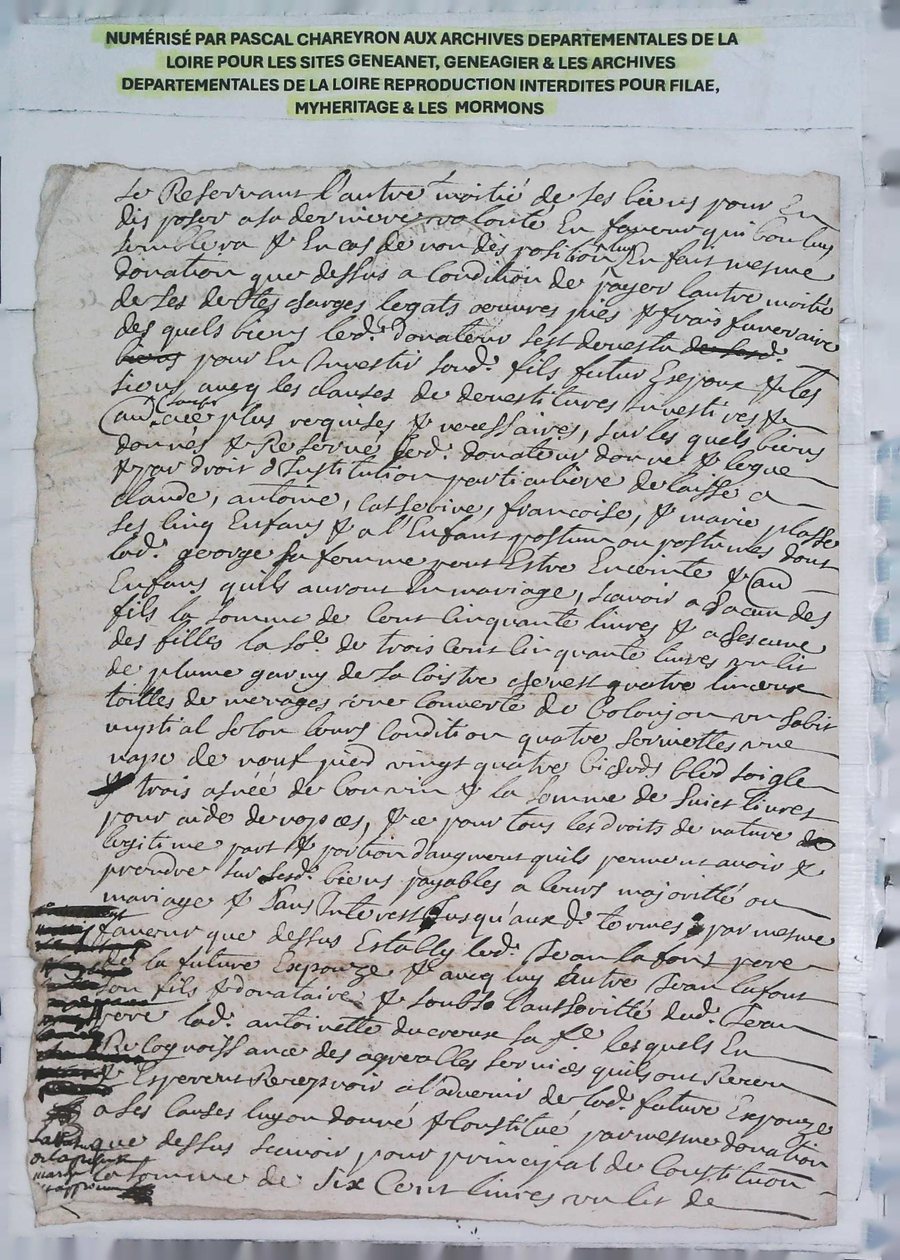 NUMÉRISÉ PAR PASCAL CHAREYRON AUX ARCHIVES DEPARTEMENTALES DE LA
LOIRE POUR LES SITES GENEANET, GENEAGIER & LES ARCHIVES
DEPARTEMENTALES DE LA LOIRE REPRODUCTION INTERDITES POUR FILAE,
MYHERITAGE & LES MORMONS
se Reservant l'autre moitié de ses biens pour En
disposer a sa derniere volonté En faveur qui bon luy
semblera & En cas de non disposition luy En fait mesme
donation que dessus a Condition de payer lautre moitié
de ses debtes charges legats oeuvres pies & frais funeraire
des quels biens led. donateur sest devestu
biens pour En Investir sond. fils futur Espoux & les
siens avecq les clauses de devestitures investitures &
plus requises & necessaires, sur les quels biens
donnés & Reservés led. donateur donne & legue
& par droit d'Institution particuliere delaisse a
claude, antoine, françoise, & marie plasse
ses Cinq Enfans & a l'Enfant postume ou postumes dont
lad. george sa femme peut Estre Enceinte & au
Enfans quils auront En mariage, scavoir a chacun des
fils la somme de Cent Cinquante livres & a chescune
des filles la so.e de trois Cent Cinquante livres un lit
de plume garny de sa Coistre chevest quatre linceux
toilles de menages une Couverte de un habit
selon leurs Condition quatre serviettes une
nape de neuf pied vingt quatre bichets bled soigle
& trois asnée de bon vin & la somme de huict livres
pour aide de nopces, & ce pour tous les droits de nature
legitime part & portion daugment quils peuvent avoir &
prendre sur lesd. biens payables a leurs majorité ou
mariage & sans Interest Jusqu'aux d. termes par mesme
faveur que dessus Estably led. Jean lafont pere
de la future Expouze & avecq luy autre Jean lafont
son fils & donataire & soubs l'authorité dud. Jean
pere lad. antoinette ducreux sa fe lesquels En
Recognoissance des agreables services quils ont Receu
& Esperent Recepvoir a l'advenir de lad. future Expouze
a ses Causes luy ont donné & Constitué par mesme donation
que dessus scavoir pour principal de Constitution
la somme de Six Cent livres un lit de